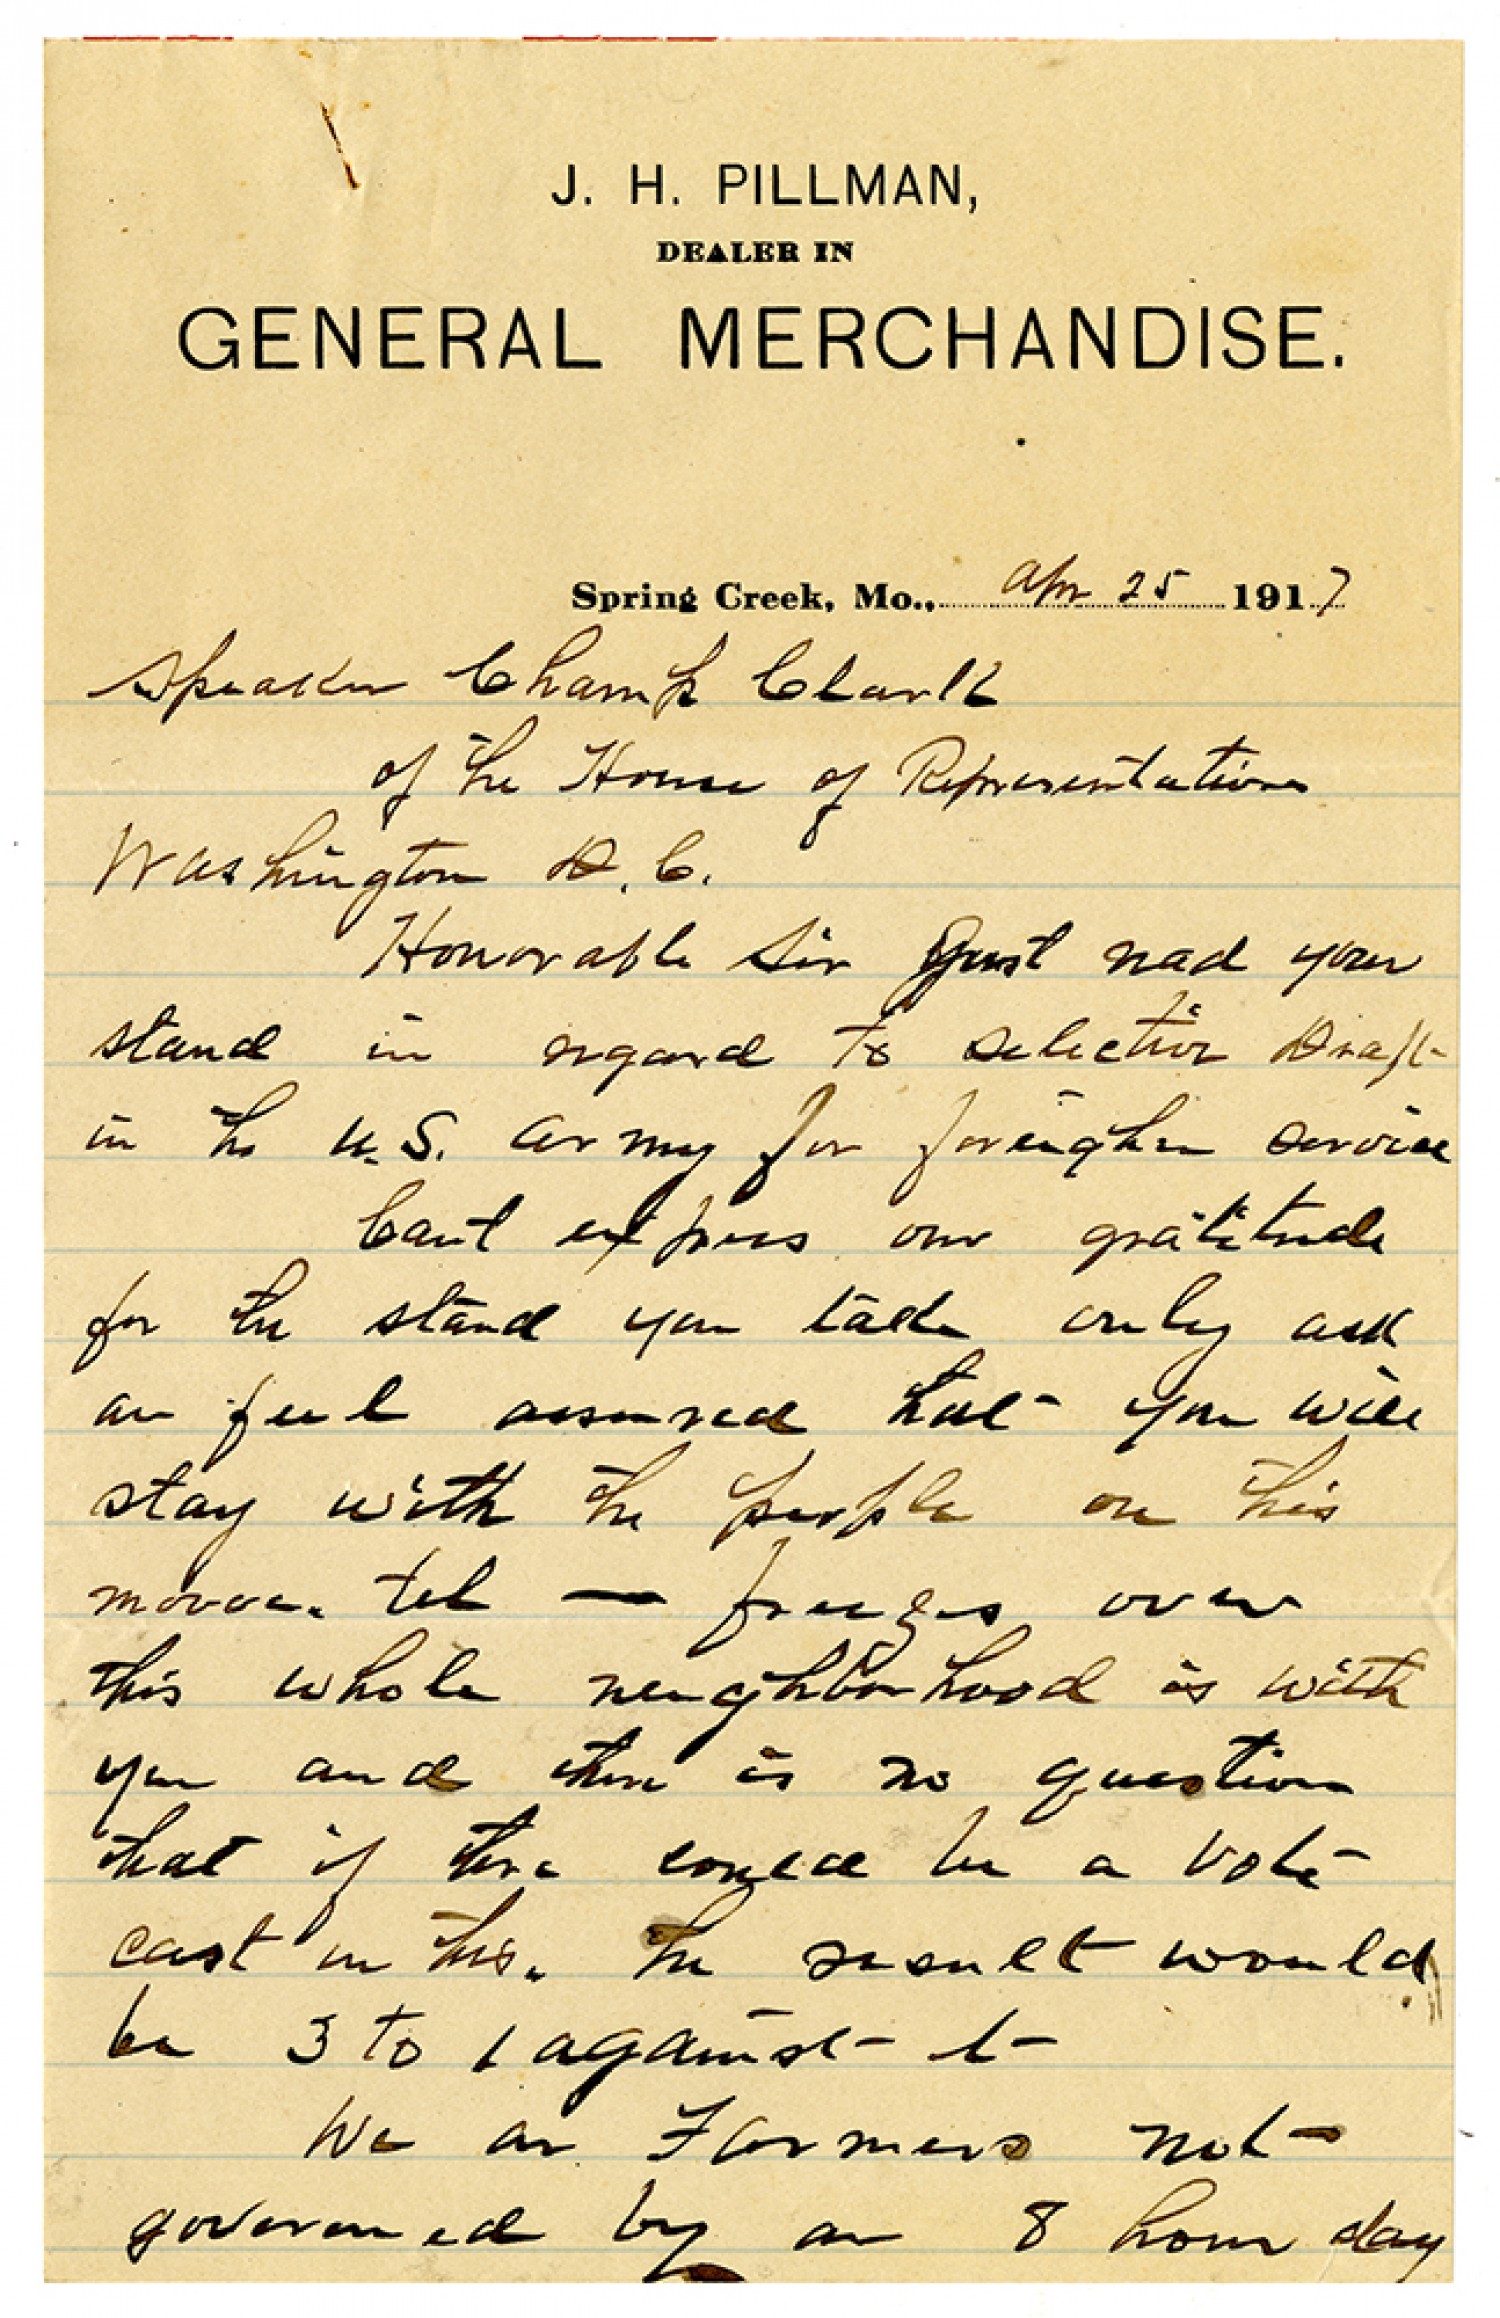 J. H. PILLMAN,
DEALER IN
GENERAL MERCHANDISE.
Spring Creek, Mo., Apr 25 1917
Speaker Champ Clark
of the House of Representatives
Washington D.C.
Honorable Sir Just read your
stand in regard to selective Draft
in the U.S. army for foreighn service
Cant express our gratitude
for the stand you take only ask
an feel assured that you will
stay with the people on this
move. tel — freezes over
this whole neighborhood is with
you and there is no question
that if there could be a vote
cast in this. the result would
be 3 to 1 against it
We are Farmers not
governed by an 8 hour day